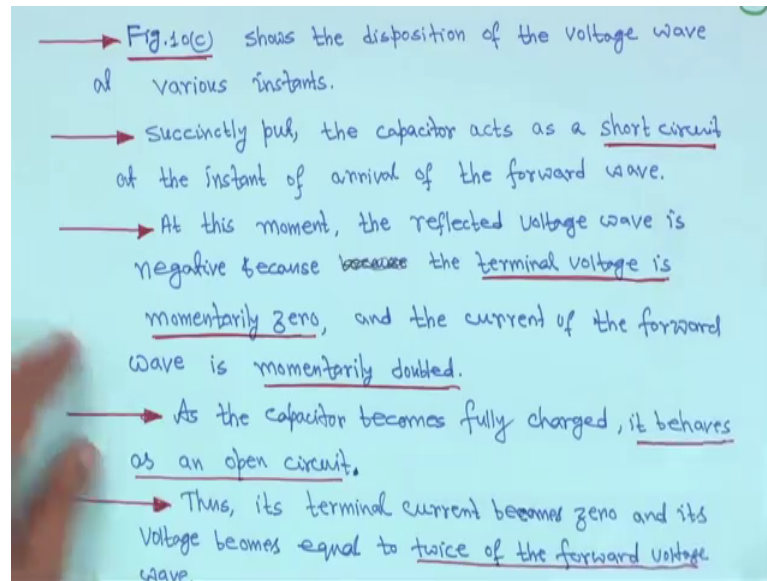 Fig.10(c) shows the disposition of the voltage wave
at various instants.
Succinctly put, the capacitor acts as a short circuit
at the instant of arrival of the forward wave.
At this moment, the reflected voltage wave is
negative because because the terminal voltage is
momentarily zero, and the current of the forward
wave is momentarily doubled.
As the capacitor becomes fully charged, it behaves
as an open circuit.
Thus, its terminal current becomes zero and its
voltage beomes equal to twice of the forward voltage
wave.